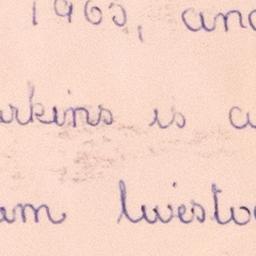 1965, and
rkins is a
am livesto